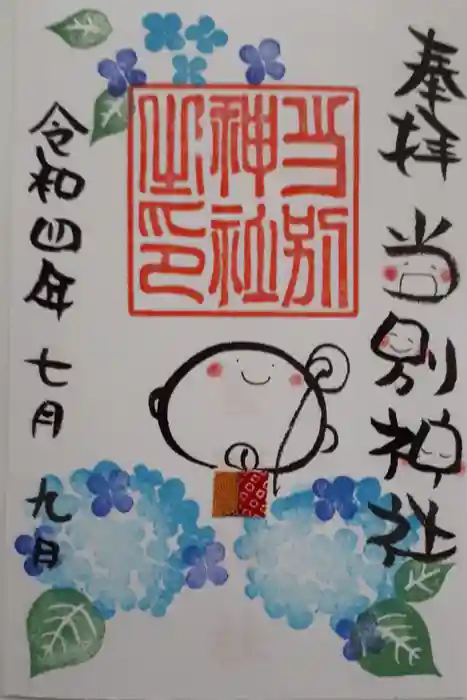 奉拝 当別神社
当別
神社
之印
令和四年 七月 九日